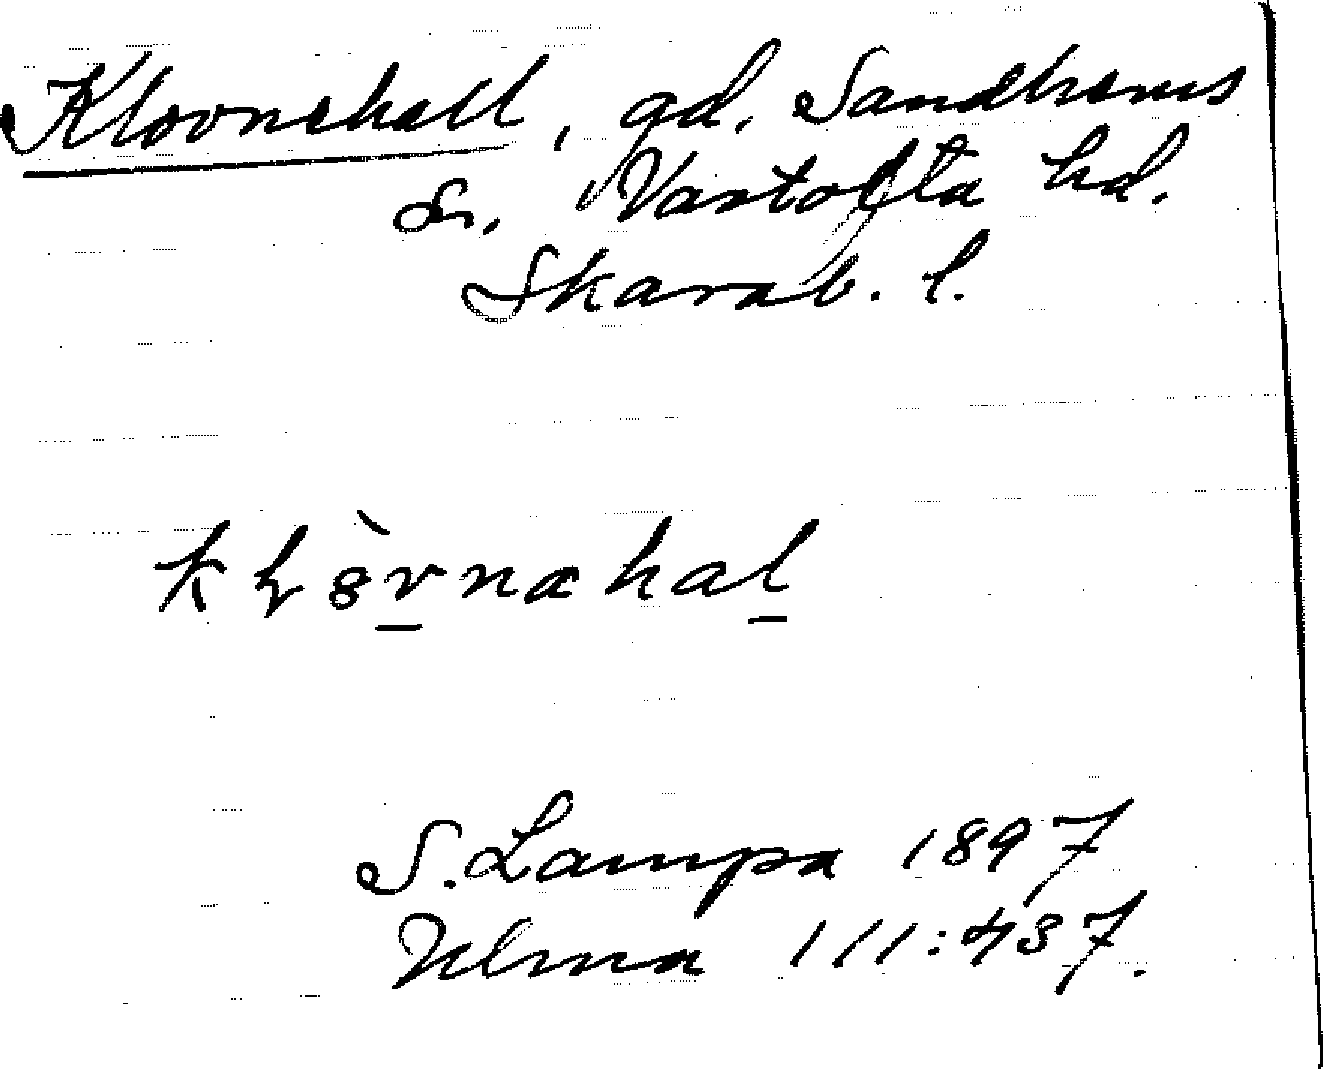 Klovnehall, gd. Sandhems
sn. Vartofta hd.
Skarab. l.
S. Lampa 1897
Ulma 111:437.